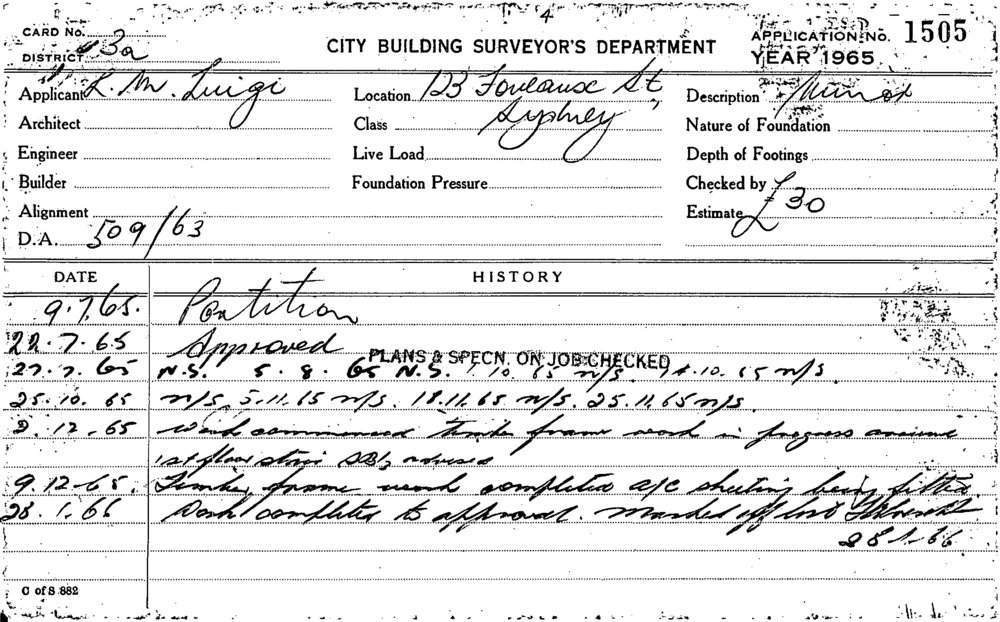 4
CARD No.
DISTRICT 3a
CITY BUILDING SURVEYOR'S DEPARTMENT
APPLICATION No. 1505
YEAR 1965
Applicant L. M. Luigi
Location 123 Foveaux St
Sydney
Description Minor
Architect
Class
Nature of Foundation
Engineer
Live Load
Depth of Footings
Builder
Foundation Pressure
Checked by
Alignment
Estimate £30
D.A. 509/63
DATE HISTORY
9.7.65. Partition
22.7.65 Approved
PLANS & SPECN. ON JOB CHECKED
27.7.65 N.S. 5.8.65 N.S. 1.10.65 n/s. 14.10.65 n/s
25.10.65 n/s 5.11.65 n/s. 18.11.65 n/s. 25.11.65 n/s.
2.12.65 Work commenced timber frame work in progress around
1st floor stairs advised
9.12.65. Timber frame work completed a/c sheeting being fitted
28.1.66 Work completed to approval. Marked off
28 1.66
C of S 882